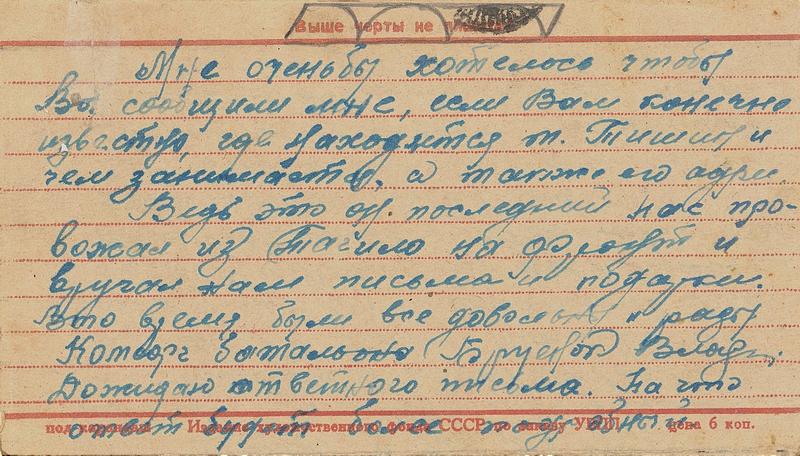 Выше черты не
Мне оченьбы хотелось чтобы
Вы сообщили мне, если Вам конечно
известно, где находится т. Тишин и
чем занимается, а также его адрес.
Ведь это он последний нас про-
вожал из Тагило на фронт и
вручал нам письма и подарки.
Это время были все довольны и рады
Комсорг батальона Владим.
Дожидаю ответного письма. На что
ответ будет более подробный
Издание художественного фонда СССР по заказу цена 6 коп.